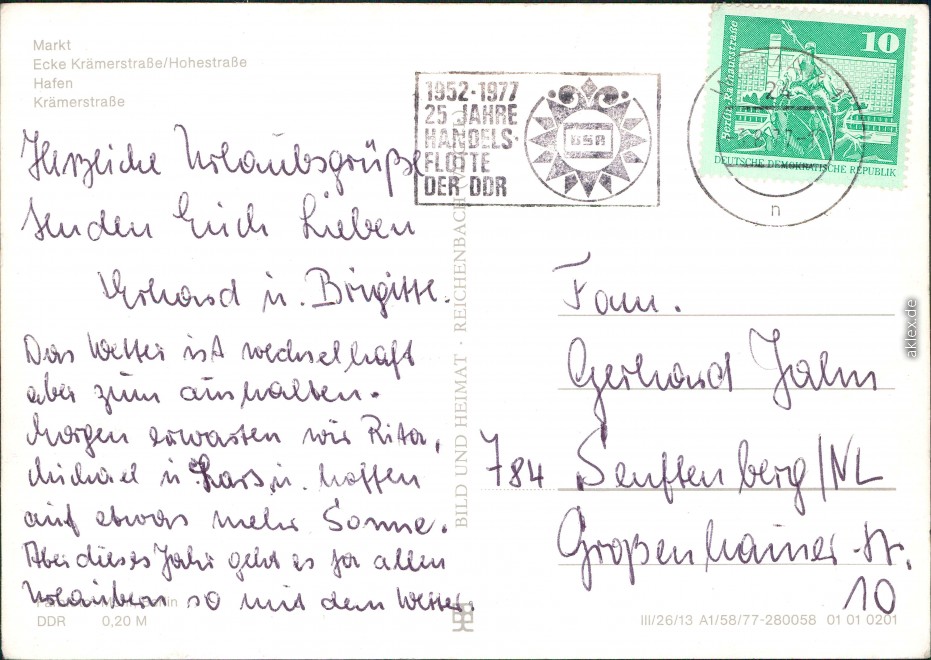 Markt
Ecke Krämerstraße/Hohestraße
Hafen
Krämerstraße
1952-1977
25 JAHRE
HANDELS-
FLOTTE
DER DDR
DSR
10
Berlin, Rathausstraße
DEUTSCHE DEMOKRATISCHE REPUBLIK
n
Herzliche Urlaubsgrüße
senden Euch Lieben
Erhard u. Brigitte.
Das Wetter ist wechselhaft
aber zum aushalten.
Morgen erwarten wir Rita,
Michael u. Lars u. hoffen
auf etwas mehr Sonne.
Aber dieses Jahr geht es ja allen
Urlaubern so mit dem Wetter.
BILD UND HEIMAT · REICHENBACH
Fam.
Gerhard Jahn
784 Senftenberg/NL
Großenhainer-Str.
10
DDR 0,20 M
III/26/13 A1/58/77-280058 01 01 0201
aklex.de